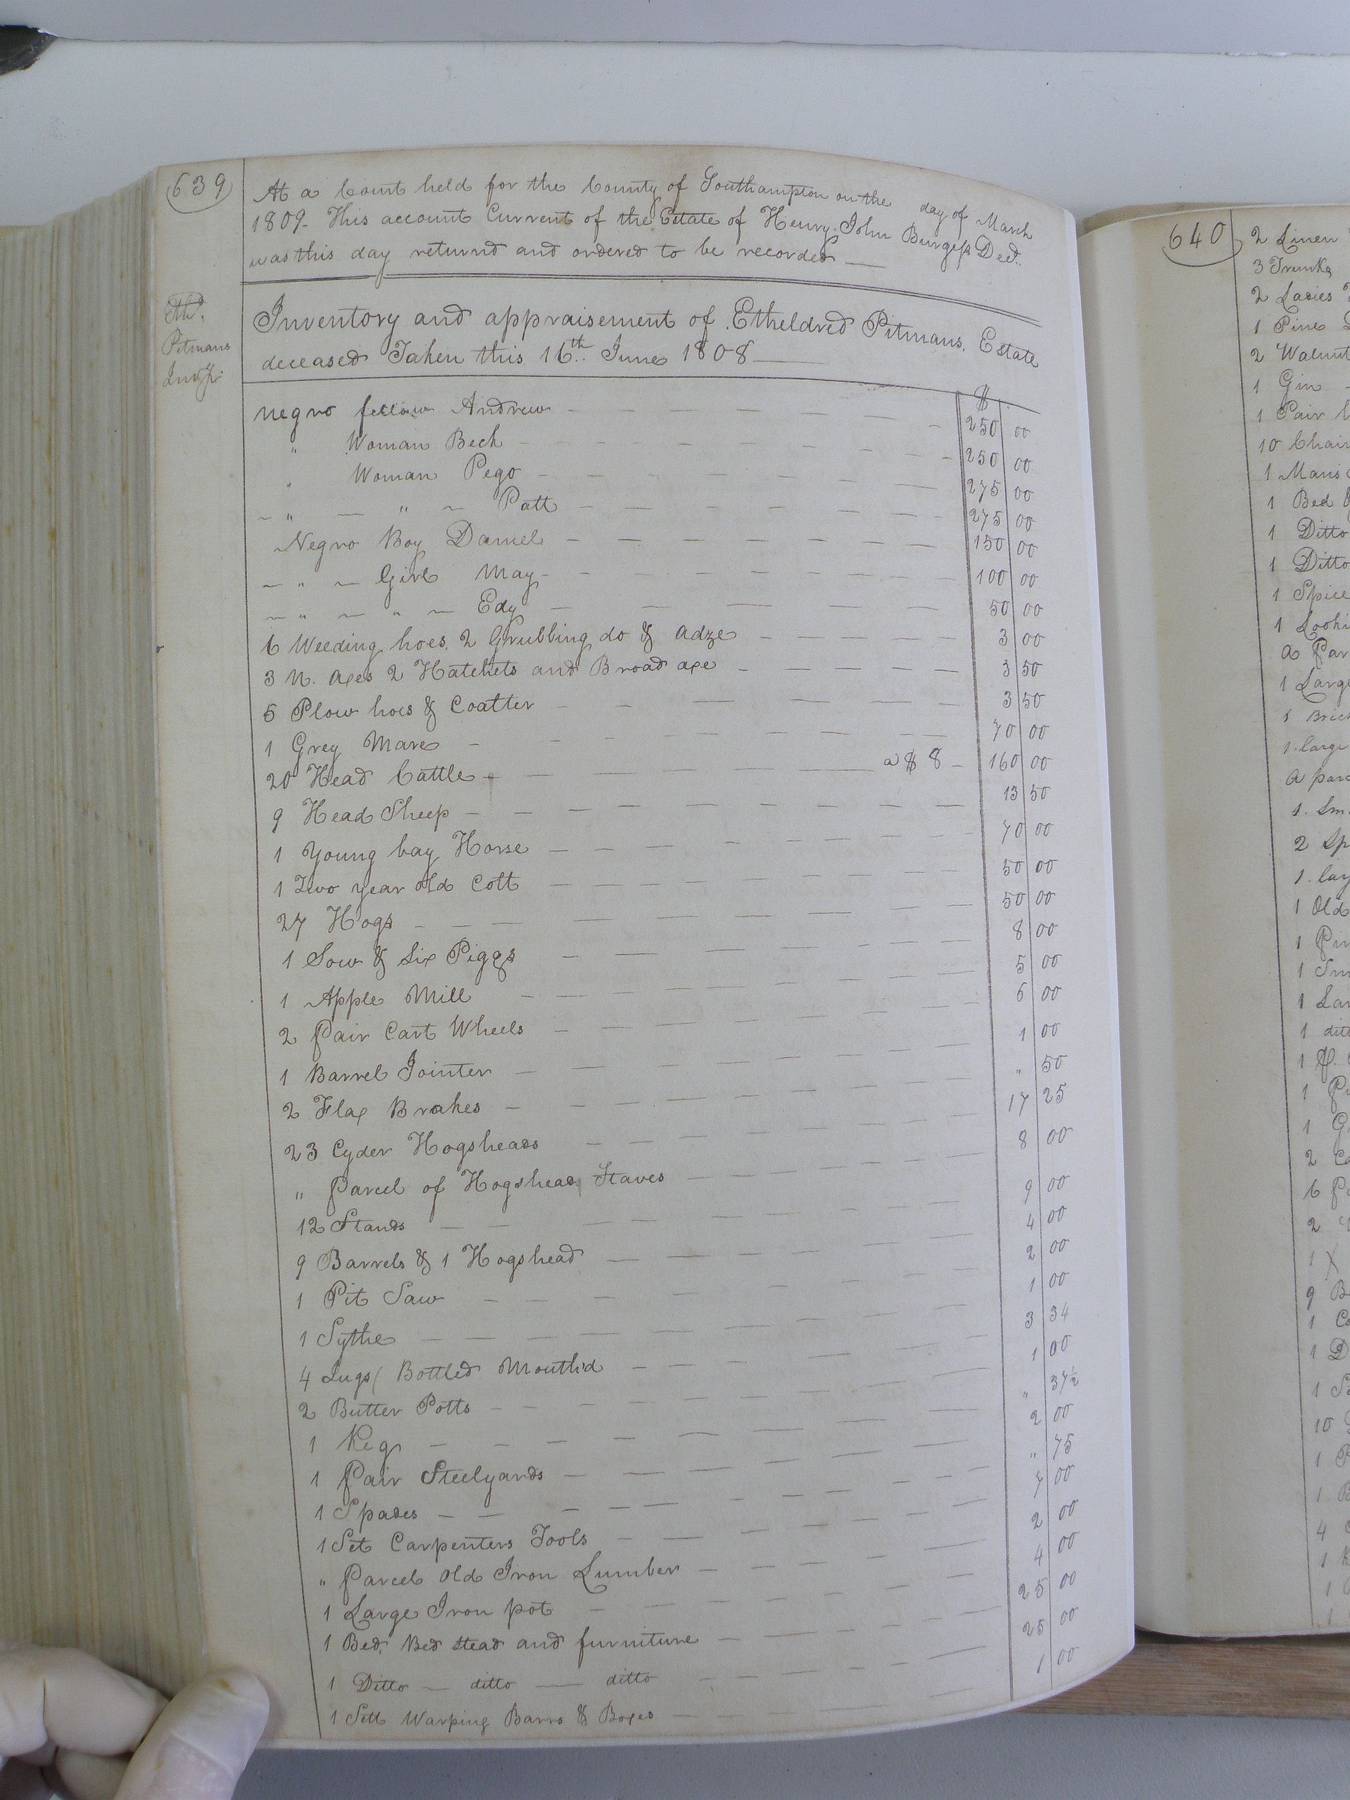 639
At a Court held for the County of Southampton on the day of March
1809. This account Current of the Estate of Henry John Burgess Decd.
was this day returnd and ordered to be recorded
Ethd.
Pitmans
Invy.
Inventory and appraisement of Etheldred Pitmans Estate
deceased Taken this 16th June 1808
$
negro fellow Andrew 250 00
" Woman Beck 250 00
" Woman Pego 275 00
" " Patt 275 00
Negro Boy Daniel 150 00
" Girl May 100 00
" " Edy 50 00
6 Weeding hoes, 2 Grubbing do & adze 3 00
3 N. axes 2 Hatchets and Broad axe 3 50
5 Plow hoes & Coatter 3 50
1 Grey Mare 70 00
20 Head Cattle a $ 8 160 00
9 Head Sheep 13 50
1 Young bay Horse 70 00
1 Two year old Colt 50 00
27 Hogs 50 00
1 Sow & Six Piggs 8 00
1 Apple Mill 5 00
2 Pair Cart Wheels 6 00
1 Barrel Jointer 1 00
2 Flax Brakes " 50
23 Cyder Hogsheads 17 25
" Parcel of Hogshead Staves 8 00
12 Stands 9 00
9 Barrels & 1 Hogshead 4 00
1 Pit Saw 2 00
1 Sythe 1 00
4 Jugs ( Bottled Mouthd 3 34
2 Butter Potts 1 00
1 Keg " 37½
1 Pair Steelyards 2 00
1 Spade " 75
1 Set Carpenters Tools 7 00
" Parcel Old Iron Lumber 2 00
1 Large Iron pot 4 00
1 Bed, Bed stead and furniture 25 00
1 Ditto ditto ditto 25 00
1 Sett Warping Barrs & Boxes 1 00
640
2 Linen
3 Trunks
2 Ladies
1 Pine
2 Walnut
1 Gin
1 Pair
10 Chair
1 Mans
1 Bed &
1 Ditto
1 Ditto
1 Spice
1 Looki
a Par
1 Large
1 Brick
1 large
a parc
1 Sm
2 Sp
1 lar
1 Old
1 Pin
1 Sm
1 Lar
1 ditt
1
1
1 G
2 C
6 P
2
1
9 B
1 Co
1 D
1 S
10
1
1 B
4
1
1
1